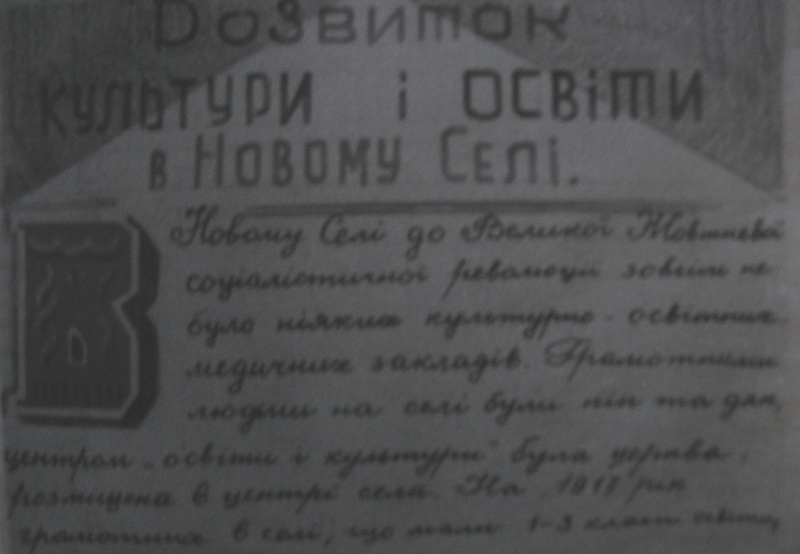 Розвиток
культури і освіти
в Новому Селі.
В Новому Селі до Великої Жовтневої
соціалістичної революції зовсім не
було ніяких культурно-освітніх
медичних закладів. Грамотними
людьми на селі були піп та дяк,
центром „освіти і культури" була церква,
розміщена в центрі села. На 1917 рік
грамотних в селі, що мали 1-3 класи освіти,